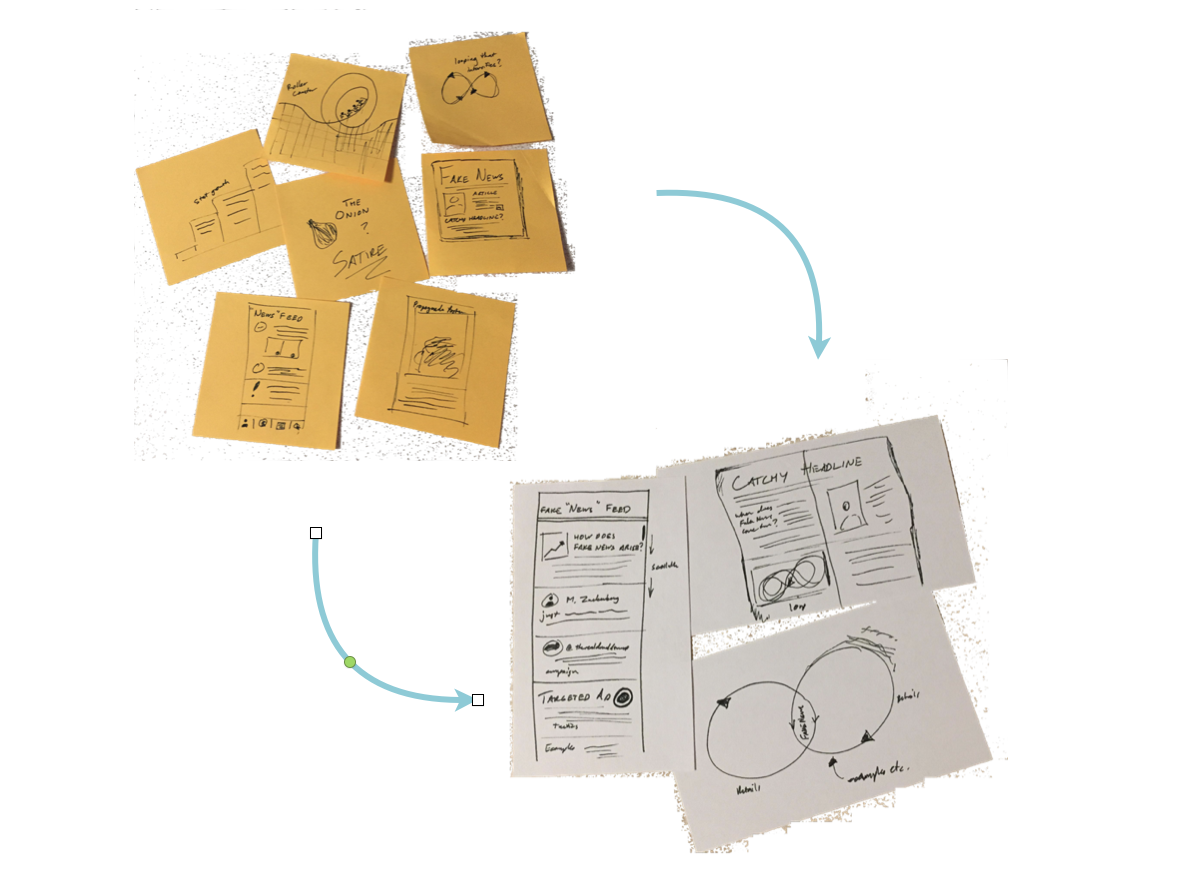 Roller
Coaster
looping that
THE
ONION
?
SATIRE
FAKE NEWS
ARTICLE
CATCHY HEADLINE?
"NEWS" FEED
!
Propaganda Poster
FAKE "NEWS" FEED
HOW DOES
FAKE NEWS ARISE?
M. Zuckerberg
just
@therealdonaldtrump
campaign
TARGETED AD
Example
CATCHY HEADLINE
where does
Fake News
come from?
loop
Fake News
Details
Details
examples etc.